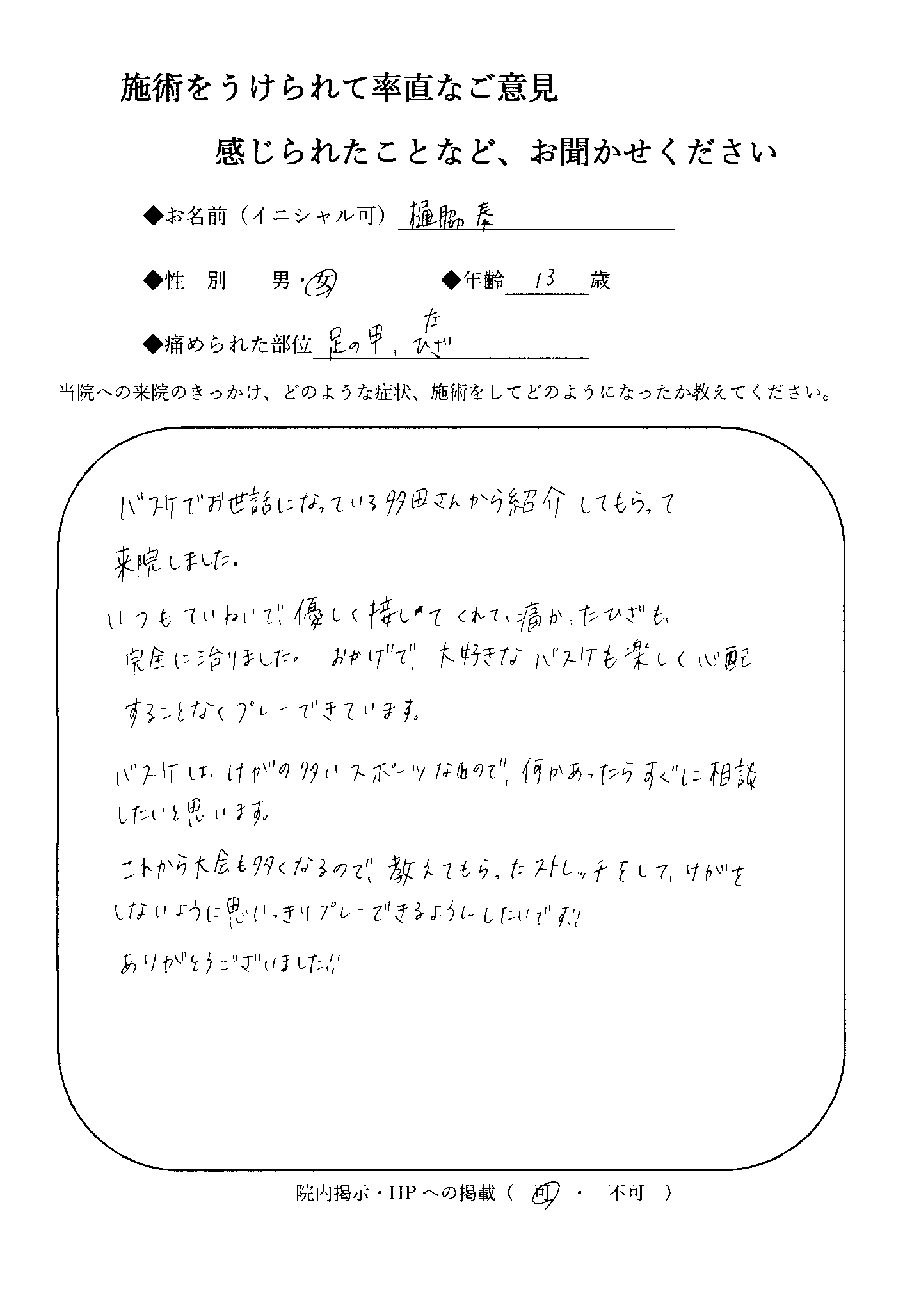 施術をうけられて率直なご意見
感じられたことなど、お聞かせください
◆お名前（イニシャル可） 樋脇 奏
◆性 別 男・女 ◆年齢 13 歳
◆痛められた部位 足の甲、ひざ
当院への来院のきっかけ、どのような症状、施術をしてどのようになったか教えてください。
バスケでお世話になっている多田さんから紹介してもらって
来院しました。
いつもていねいで、優しく接してくれて、痛かったひざも、
完全に治りました。 おかげで、大好きなバスケも楽しく心配
することなくプレーできています。
バスケは、けがの多いスポーツなので、何かあったらすぐに相談
したいと思います。
これから大会も多くなるので、教えてもらったストレッチをして、けがを
しないように思いっきりプレーできるようにしたいです!!
ありがとうございました!!
院内掲示・HPへの掲載（ 可 ・ 不可 ）